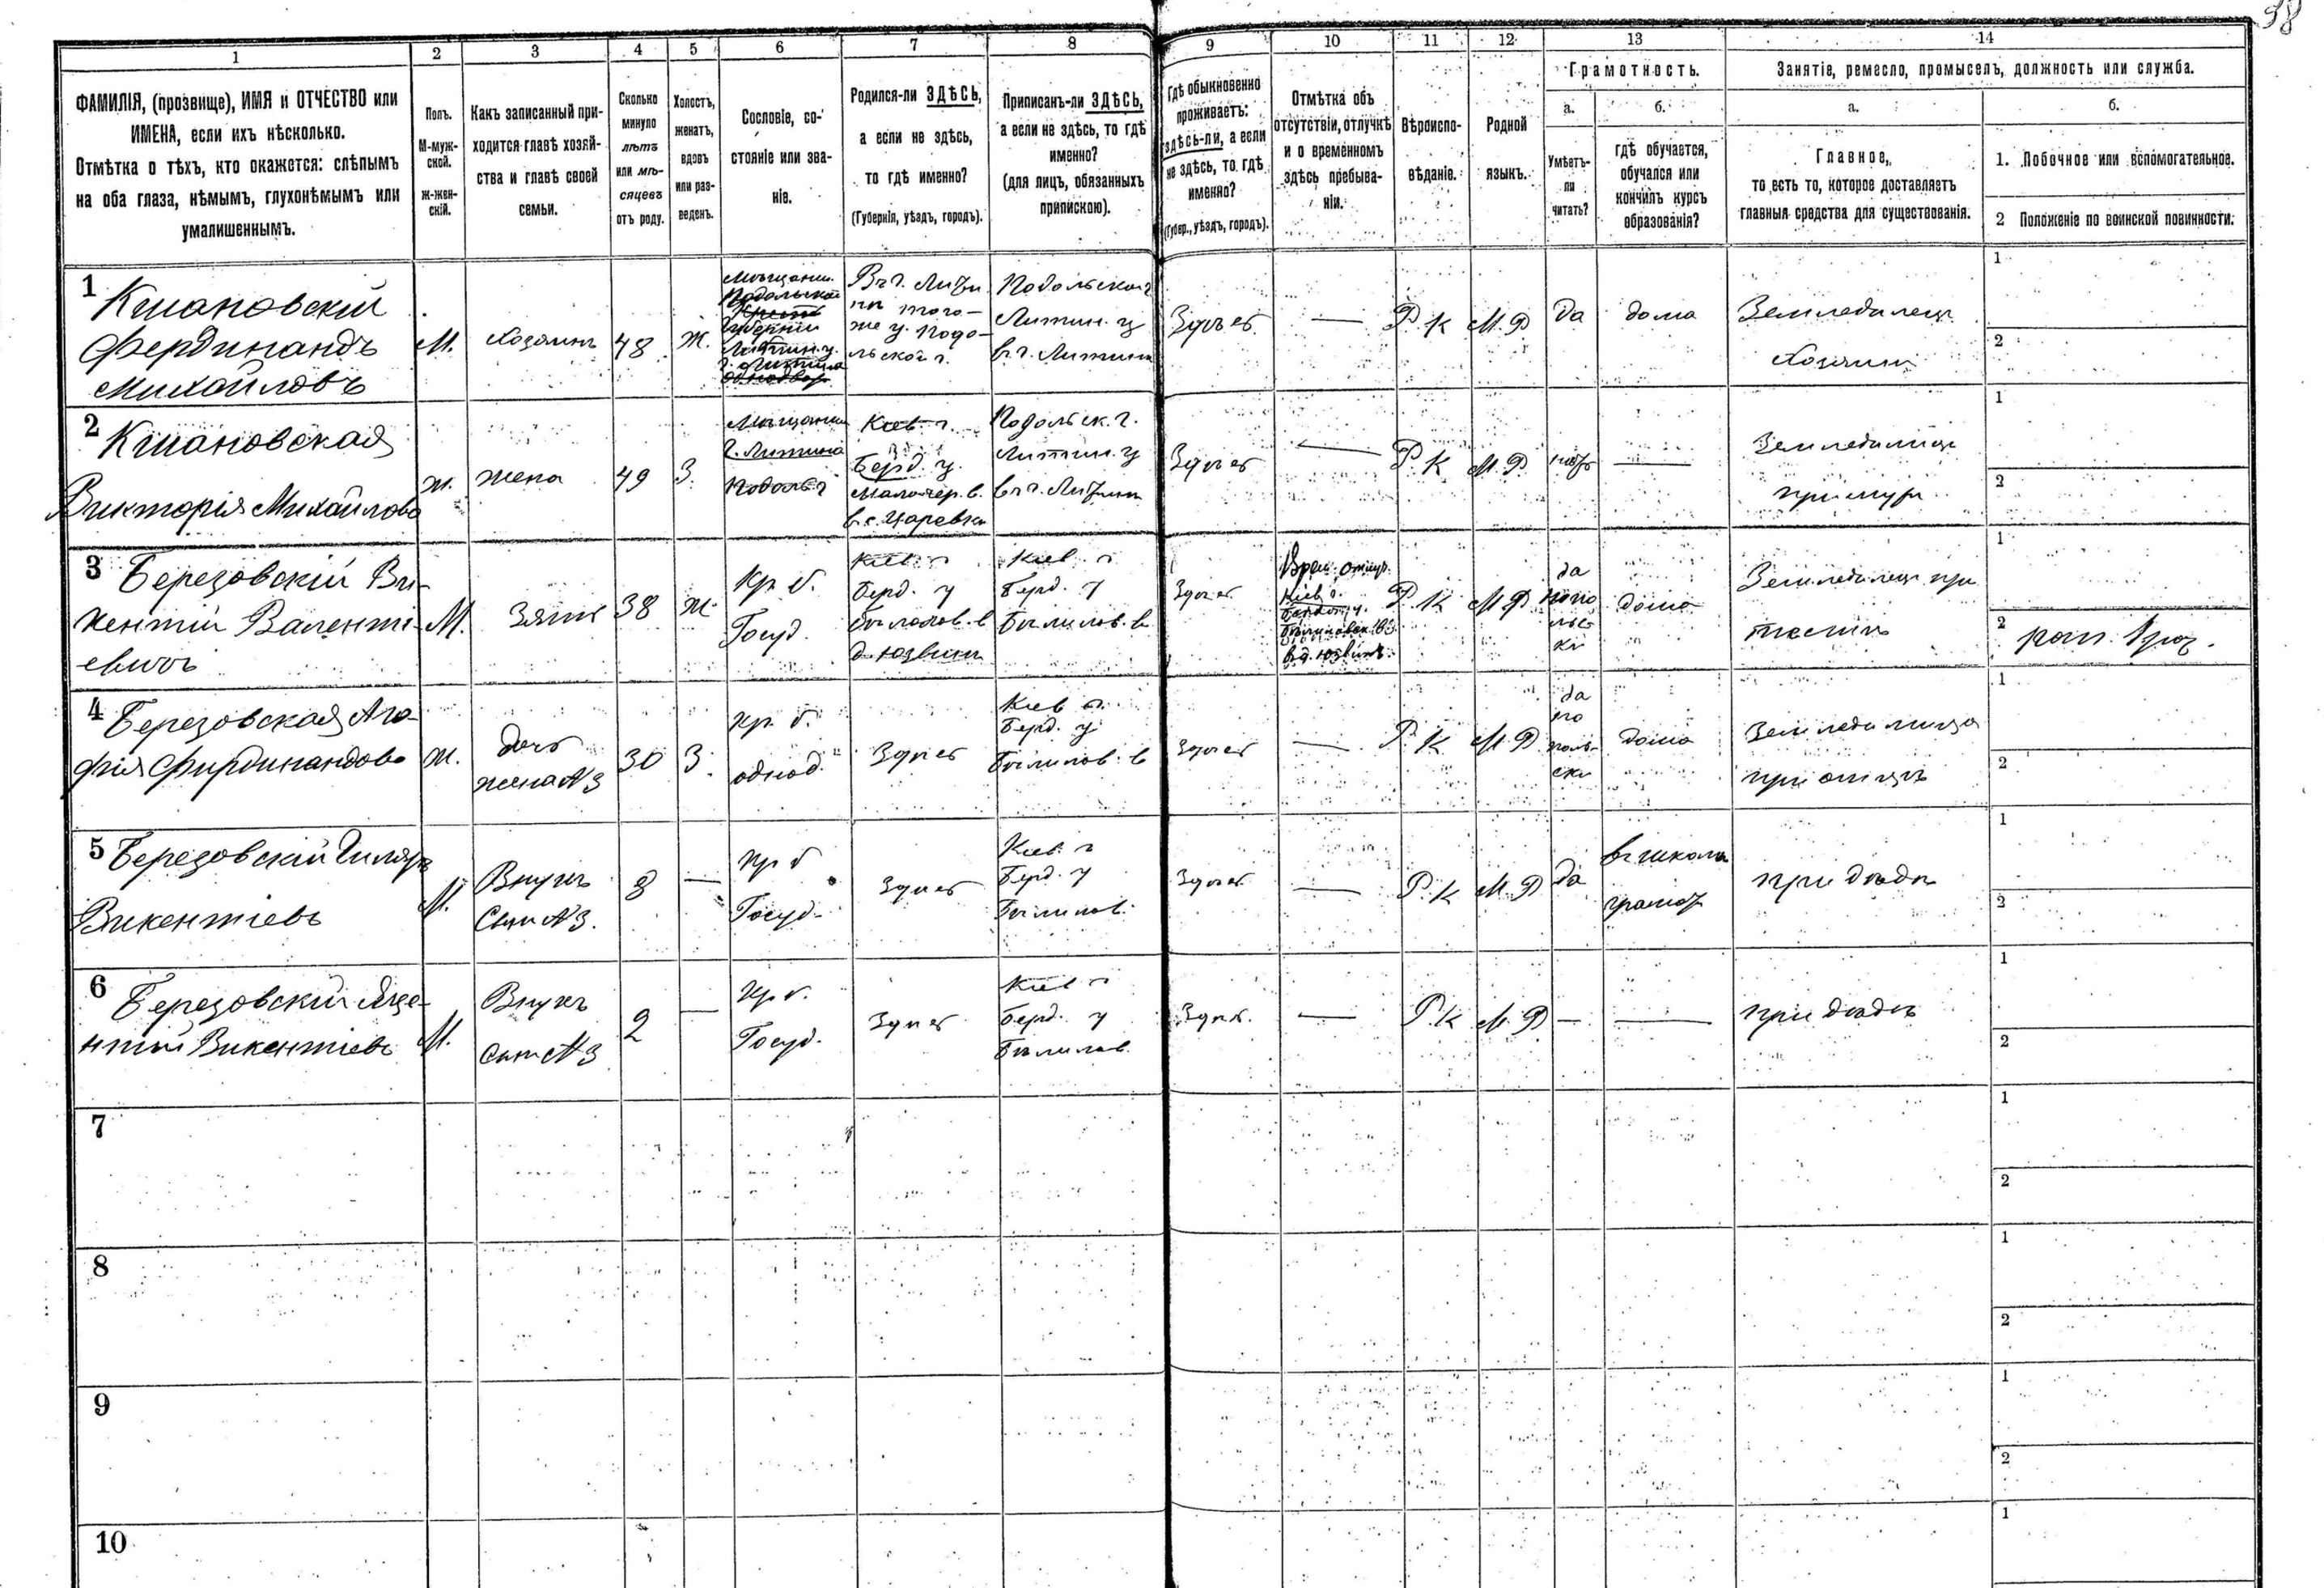 98
1 2 3 4 5 6 7 8 9 10 11 12 13 14
ФАМИЛІЯ, (прозвище), ИМЯ и ОТЧЕСТВО или
ИМЕНА, если ихъ нѣсколько.
Отмѣтка о тѣхъ, кто окажется: слѣпымъ
на оба глаза, нѣмымъ, глухонѣмымъ или
умалишеннымъ.
Полъ.
М-муж-
ской.
ж-жен-
скій.
Какъ записанный при-
ходится главѣ хозяй-
ства и главѣ своей
семьи.
Сколько
минуло
лѣтъ
или мѣ-
сяцевъ
отъ роду.
Холостъ,
женатъ,
вдовъ
или раз-
веденъ.
Сословіе, со-
стояніе или зва-
ніе.
Родился-ли ЗДѢСЬ,
а если не здѣсь,
то гдѣ именно?
(Губернія, уѣздъ, городъ).
Приписанъ-ли ЗДѢСЬ,
а если не здѣсь, то гдѣ
именно?
(для лицъ, обязанныхъ
припискою).
Гдѣ обыкновенно
проживаетъ:
здѣсь-ли, а если
не здѣсь, то гдѣ
именно?
(Губер., уѣздъ, городъ).
Отмѣтка объ
отсутствіи, отлучкѣ
и о временномъ
здѣсь пребыва-
ніи.
Вѣроиспо-
вѣданіе.
Родной
языкъ.
Грамотность.
а.
Умѣетъ-
ли
читать?
б.
гдѣ обучается,
обучался или
кончилъ курсъ
образованія?
Занятіе, ремесло, промыселъ, должность или служба.
а.
Главное,
то есть то, которое доставляетъ
главныя средства для существованія.
б.
1. Побочное или вспомогательное.
2 Положеніе по воинской повинности.
1 Кшановскій
Фердинандъ
Михайловъ
М.
Хозяинъ
48
Ж.
Подольской
Губерніи
Литин. у.
г. Литина
Въ г. Лити
нѣ того-
же у. Подо-
льской г.
Подольской г
Литин. у
въ г. Литинѣ
Здѣсь
—
Р. К
М. Р
да
дома
Земледѣлецъ
Хозяинъ
1
2
2 Кшановская
Викторія Михайлова
ж.
жена
49
З.
г. Литина
Подольс г
Киев г.
Берд. у.
Малочер. в.
в с. Царевка
Подольск. г.
Литин. у
въ г. Литинѣ
Здѣсь
—
Р. К
М. Р.
нѣтъ
—
при мужѣ
1
2
3 Березовскій Ви-
кентій Валенті-
евичъ
М.
Зять
38
ж.
Кр. б.
Госуд.
Киев г
Берд. у
Бѣлолов. в
д. Юзвин
Киев г
Берд. у
Бѣлилов. в
Здѣсь
Врем. отлуч.
Кіев г.
Бердич. у.
Бѣлиловск. в.
в д. Юзвинѣ.
Р. К
М. Р
да
по по
льс
ки
дома
Земледѣлецъ при
тестѣ
1
2
4 Березовская Ага-
фія Фирдинандова
ж.
дочь
жена №3
30
З.
кр. б.
однод.
Здѣсь
Киев г.
Берд. у
Бѣлилов. в
Здѣсь
—
Р. К
М. Р
да
по
поль-
ски
дома
Земледѣлица
при отцѣ
1
2
5 Березовскій Гиляръ
Викентіевъ
М.
Внукъ
Сынъ №3.
8
—
кр б
Госуд-
Здѣсь
Киев. г
Берд. у
Бѣлилов.
Здѣсь
—
Р. К
М. Р
да
въ школѣ
грамот
при дѣдѣ
1
2
6 Березовскій Яце-
нтій Викентіевъ
М.
Внукъ
Сынъ №3
2
—
Кр б.
Госуд.
Здѣсь
Киев г
Берд. у
Бѣлилов.
Здѣсь.
—
Р. К
М. Р
—
—
при дѣдѣ
1
2
7
1
2
8
1
2
9
1
2
10
1